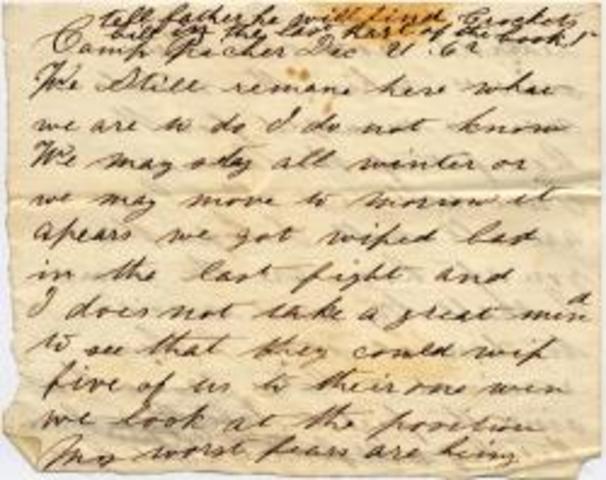 tell father he will find Crockets
bill in the last part of the book
Camp Pitcher Dec 21 62
We Still remane here what
we are to do I do not know
We may stay all winter or
we may move to morrow it
apears we got wiped bad
in the last fight and
I does not take a great mind
to see that they could wip
five of us to their one wen
we look at the position
My worst fears are being